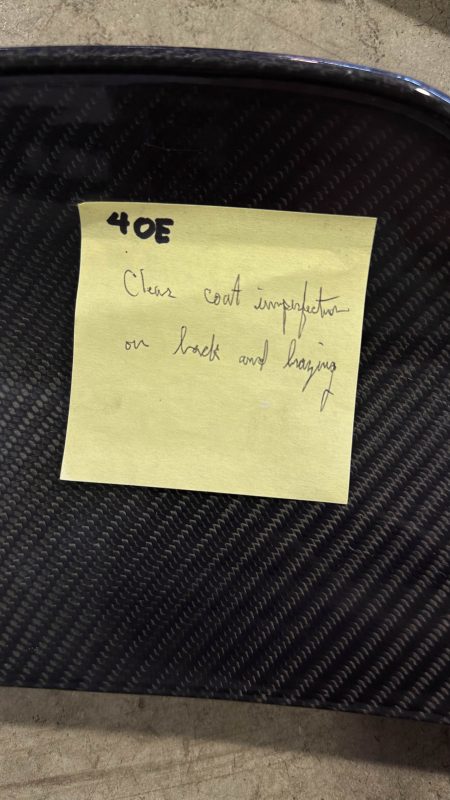 40E
Clear coat imperfection
on back and hazing